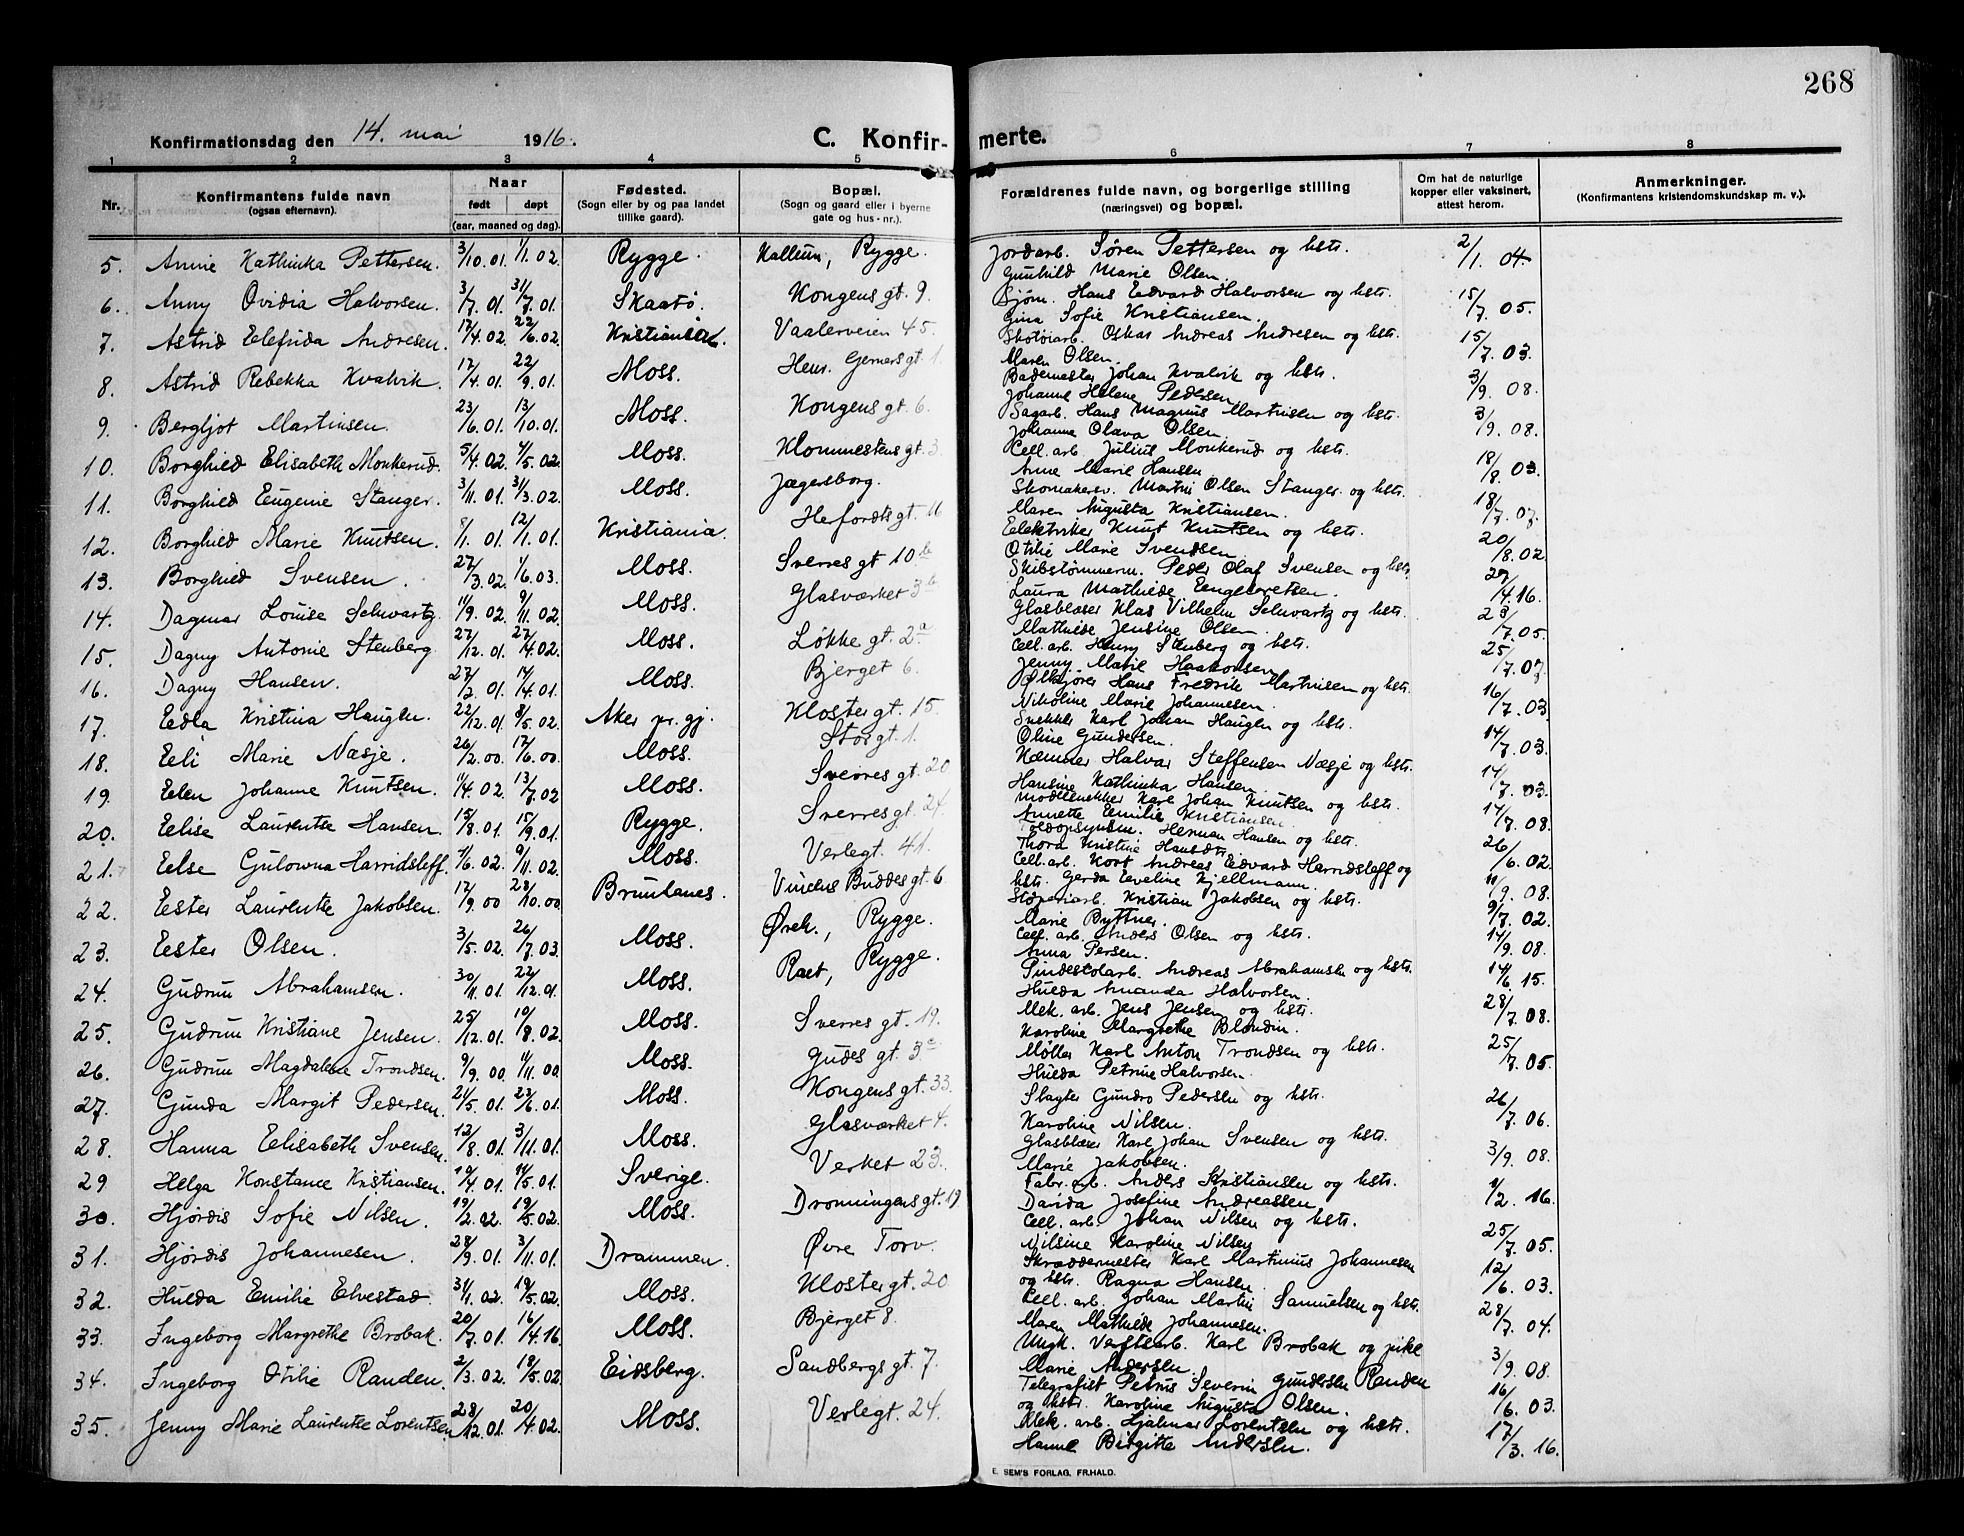 268
Konfirmationsdag den 14. mai 1916.
C. Konfir-
merte.
1 2 3 4 5 6 7 8
Nr.
Konfirmantens fulde navn
(ogsaa efternavn).
Naar
født døpt
(aar, maaned og dag).
Fødested.
(Sogn eller by og paa landet
tillike gaard).
Bopæl.
(Sogn og gaard eller i byerne
gate og hus-nr.).
Forældrenes fulde navn, og borgerlige stilling
(næringsvei) og bopæl.
Om hat de naturlige
kopper eller vaksinert,
attest herom.
Anmerkninger.
(Konfirmantens kristendomskundskap m. v.).
5. Annie Kathinka Pettersen. 3/10.01. 1/1.02. Rygge. Kallum, Rygge. Jordarb. Søren Pettersen og hstr. 2/1. 04.
Gunhild Marie Olsen.
6. Anny Ovidia Halvorsen. 3/7.01. 31/7.01. Skaatø. Kongens gt. 9. Sjøm. Hans Edvard Halvorsen og hstr. 15/7. 05.
Gina Sofie Kristiansen.
7. Astrid Elefrida Andresen. 17/4.02. 22/6.02. Vaalerveien 45. Skotøiarb. Oskar Andreas Andresen og hstr. 15/7. 03.
Maren Olsen.
8. Astrid Rebekka Kvalvik. 17/4.01. 22/9.01. Moss. Henr. Gerners gt. 1. Bademester Johan Kvalvik og hstr. 3/9. 08.
Johanne Helene Pedersen.
9. Bergljot Martinsen. 23/6.01. 13/10.01. Moss. Kongens gt. 6. Sagarb. Hans Magnus Martinsen og hstr. 3/9. 08.
Johanne Olava Olsen.
10. Borghild Elisabeth Monkerud. 5/4.02. 4/5.02. Moss. 3. Cell. arb. Julius Monkerud og hstr. 18/8. 03.
Anne Marie Hansen.
11. Borghild Eugenie Stanger. 3/11.01. 31/3.02. Moss. Jægersborg. Skomakersv. Martin Olsen Stanger og hstr. 18/7. 07.
Maren Augusta Kristiansen.
12. Borghild Marie Knutsen. 8/1.01. 12/1.01. Kristiania. Herfordts gt. 11 Elektriker Knut Knutsen og hstr. 20/8. 02
Otilie Marie Svendsen.
13. Borghild Svensen. 27/3.02. 1/6.03. Moss. Sverres gt 10 b Skibstømmerm. Peder Olaf Svensen og hstr. 29/4. 16.
Laura Mathilde Engebretsen.
14. Dagmar Louise Schwartz. 11/9.02. 9/11.02. Moss. Glasværket 3 b Glasblæser Klas Vilhelm Schwartz og hstr. 23/7. 05.
Mathilde Jensine Olsen.
15. Dagny Antonie Stenberg. 27/12.01. 27/4.02. Moss. Løkke gt. 2 a Cell. arb. Henry Stenberg og hstr. 25/7. 07
Jenny Marie Haakonsen.
16. Dagny Hansen. 27/2.01. 14/4.01. Moss. Bjerget 6. Ølkjører Hans Fredrik Martinsen og hstr. 16/7. 03
Nikoline Marie Johannesen.
17. Edla Kristina Haugen. 22/12.01. 8/5.02. Aker pr. gj. Kloster gt. 15. Snekker Karl Johan Haugen og hstr. 14/7. 03.
Oline Gundersen.
18. Eli Marie Næsje. 26/2.00. 17/6.00. Moss. Stor gt. 1. Kæmner Halvar Steffensen Næsje og hstr. 14/7. 03.
Hansine Kathinka Hansen.
19. Elen Johanne Knutsen. 11/4.02. 13/7.02 Moss. Sverres gt. 20 Modelsnekker Karl Johan Knutsen og hstr. 14/7. 08.
Annette Emilie Kristiansen
20. Elise Laurentse Hansen. 15/8.01. 15/9.01. Rygge. Sverres gt. 24. Toldopsynsm. Herman Hansen og hstr. 26/6. 02
Thora Kristine Hansdtr.
21. Else Gulowna Harridsleff. 7/6.02. 9/11.02. Moss. Verlegt. 41. Cell. arb. Kort Andreas Edvard Harridsleff og 11/9. 08.
hstr. Gerda Eveline Kjellmann.
22. Ester Laurentse Jakobsen. 17/9.00 28/10.00. Brunlanes. Vincens Buddes gt. 6 Støperiarb. Kristian Jakobsen og hstr. 9/7. 02.
Marie Byttner.
23. Ester Olsen. 3/5.02. 26/7.03. Moss. Ørek., Rygge. Cell. arb. Anders Olsen og hstr. 14/9. 08.
Anna Persen.
24. Gudrun Abrahamsen. 30/11.01. 22/12.01. Moss. Raet, Rygge. Pindestolarb. Andreas Abrahamsen og hstr. 14/6. 15.
Hulda Amanda Halvorsen.
25. Gudrun Kristiane Jensen. 25/12.01. 10/8.02. Moss. Sverres gt. 19. Mek. arb. Jens Jensen og hstr. 28/7. 08.
Karoline Margrethe Blondin.
26. Gudrun Magdalene Trondsen. 9/9.00. 11/11.00. Moss. Gudes gt. 3 c Møller Karl Anton Trondsen og hstr. 25/7. 05.
Hulda Petrine Halvorsen.
27. Gunda Margit Pedersen. 21/5.01. 23/6.01. Moss. Kongens gt. 33. Slagter Gundro Pedersen og hstr. 26/7. 06.
Karoline Nilsen.
28. Hanna Elisabeth Svensen. 12/8.01. 3/11.01. Moss. Glasværket 4. Glasblæser Karl Johan Svensen og hstr. 3/9. 08.
Marie Jakobsen.
29 Helga Konstance Kristiansen. 10/4.01. 14/5.01. Sverige. Verket 23. Fabr. arb. Anders Kristiansen og hstr. 1/2. 16.
Davida Josefine Andreassen.
30. Hjørdis Sofie Nilsen. 19/2.02. 19/5.02. Moss. Dronningens gt. 19 Cell. arb. Johan Nilsen og hstr. 25/7. 05.
Nilsine Karoline Nilsen
31. Hjørdis Johannesen. 28/9.01. 3/11.01. Drammen. Øvre Torv. Skræddermester Karl Martinius Johannesen 12/6. 03.
og hstr. Ragna Hansen.
32. Hulda Emilie Elvestad. 31/1.02. 19/5.02. Moss. Kloster gt. 20 Cell. arb. Johan Martin Samuelsen og hstr. 28/7. 04.
Maren Mathilde Johannesen.
33. Ingeborg Margrethe Brobak. 20/7.01. 16/4.16. Moss. Bjerget 8. Ungk. Verftsarb. Karl Brobak og pike 3/9. 08.
Marie Andersen.
34. Ingeborg Otilie Randen. 2/3.02. 18/5.02. Eidsberg. Sandbergs gt. 7 Telegrafist Petrus Severin Gundersen Randen 16/6. 03.
og hstr. Karoline Augusta Olsen.
35. Jenny Marie Laurentse Lorentsen. 28/12.01. 20/4.02. Moss. Verlegt. 24. Mek. arb. Hjalmar Lorentsen og hstr. 17/3. 16.
Hanne Birgitte Andersen.
E. SEM'S FORLAG, FR.HALD.